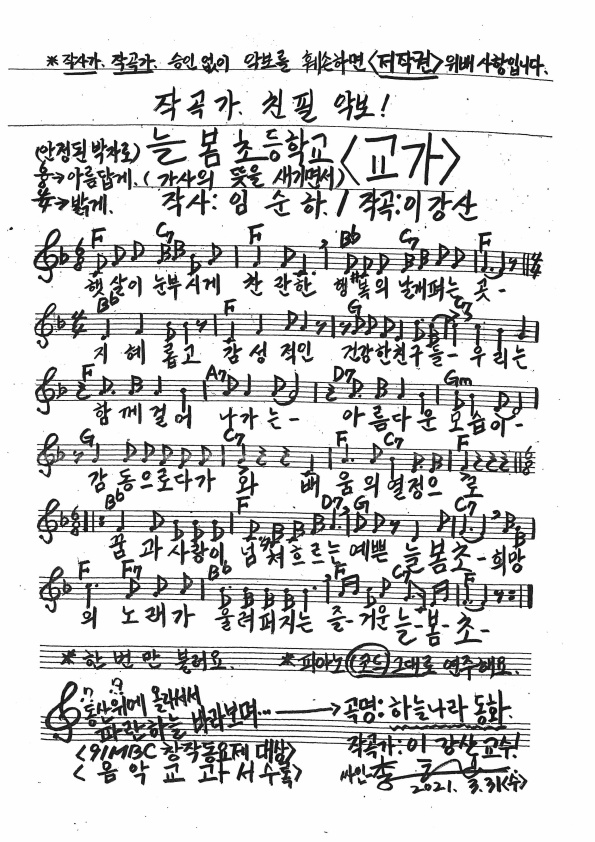 *작사가. 작곡가. 승인 없이 악보를 훼손하면 <저작권> 위배 사항입니다.
작곡가. 친필 악보!
(안정된 박자로) 늘 봄 초등학교 <교가>
6/8→아름답게. (가사의 뜻을 새기면서)
4/4→밝게. 작사: 임 순 하. / 작곡:이강산
F C7 F Bb C7 F
햇살이 눈부시게 찬 란한 행복의 날개펴는 곳-
Bb F G C7
지 혜 롭고 참 성 적인 건강한친구들- 우리는
F A7 D7 Gm
함 께 걸 어 나가 는- 아 름 다 운 모 습 이-
G C7 F C7 F
감 동으로다가 와 배 움 의 열정으 로
Bb F D7 G C7
꿈 과 사랑이 넘쳐흐르는 예쁜 늘봄초-희망
F F7 Bb F C7 F
의 노 래 가 울려퍼지는 즐-거운 늘-봄-초-
*한 번 만 불러요. *피아노 (코드) 그대로 연주해요.
동산위에 올라서서
파란하늘 바라보며... → 곡명: 하늘나라 동화.
<91MBC 창작동요제 대상> 작곡가:이 강산 교수!
<음 악 교 과 서 수록> 싸인: 李
2021. 3. 31(수)